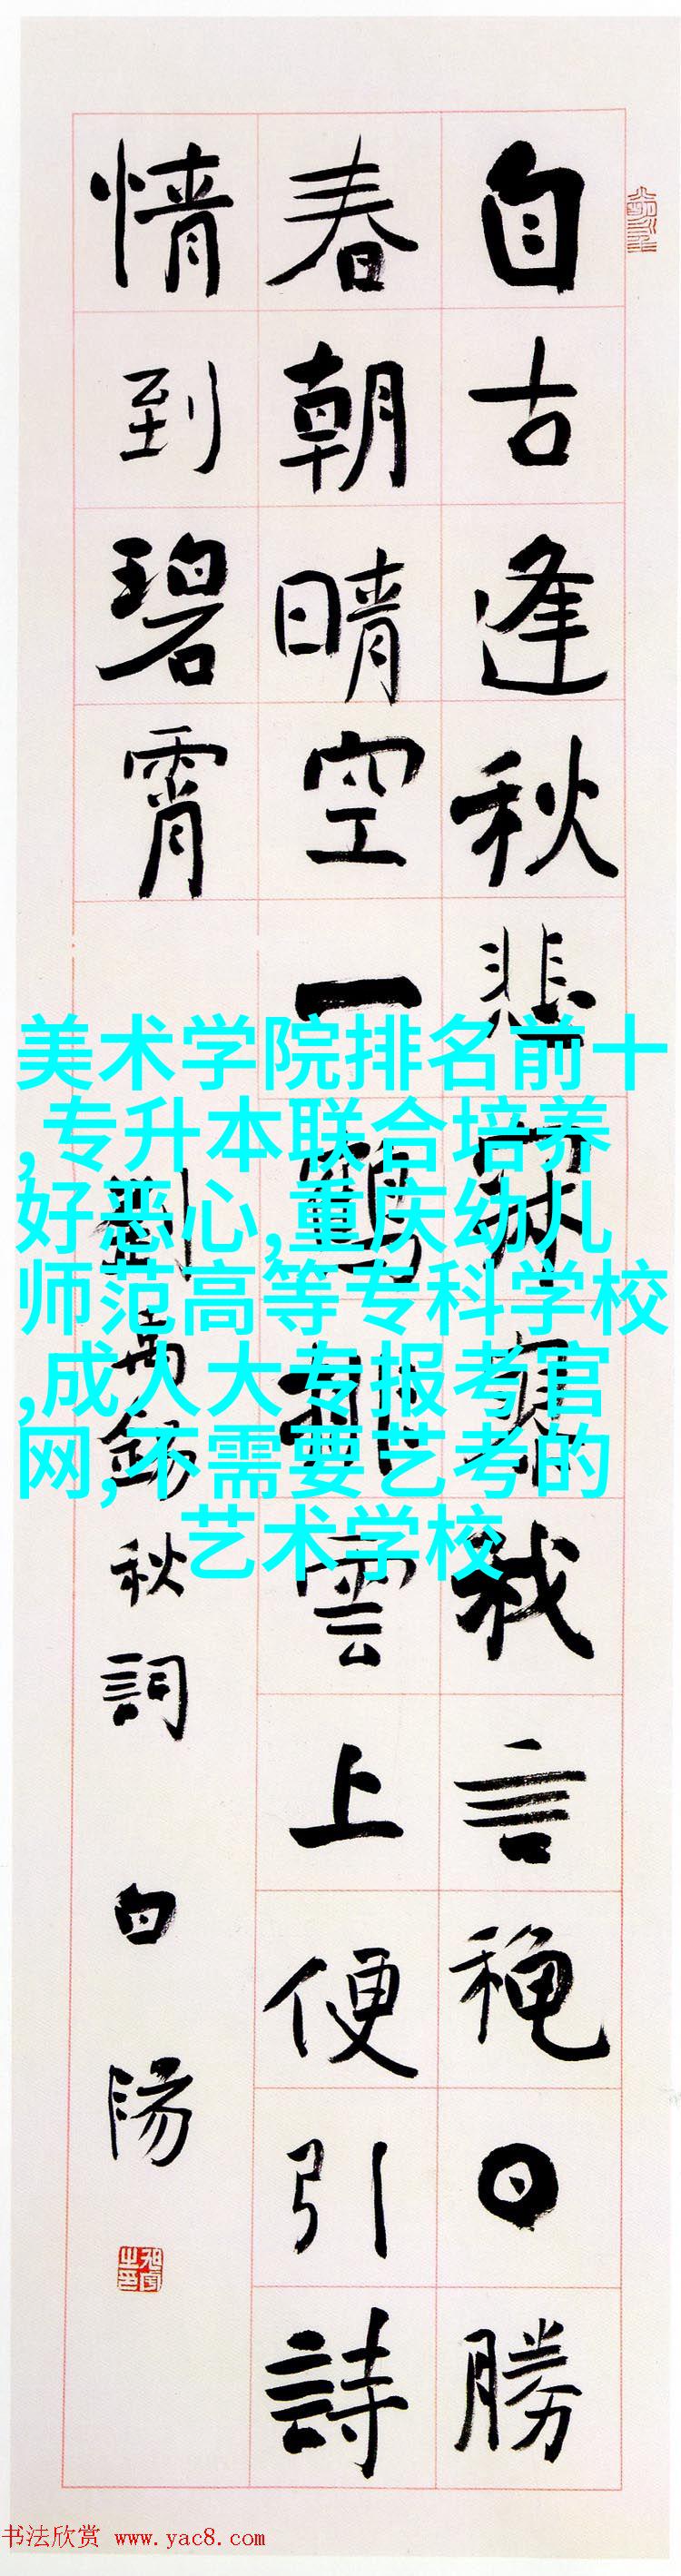 自古逢秋悲寂寥我言秋日勝
春朝晴空一鶴排雲上便引詩
情到碧霄
劉禹錫秋詞 白陽
美术学院排名前十
,专升本联合培养
好恶心,重庆幼儿
师范高等专科学校
,成人大专报考官
网,不需要艺考的
艺术学校
书法欣赏 www.yac8.com